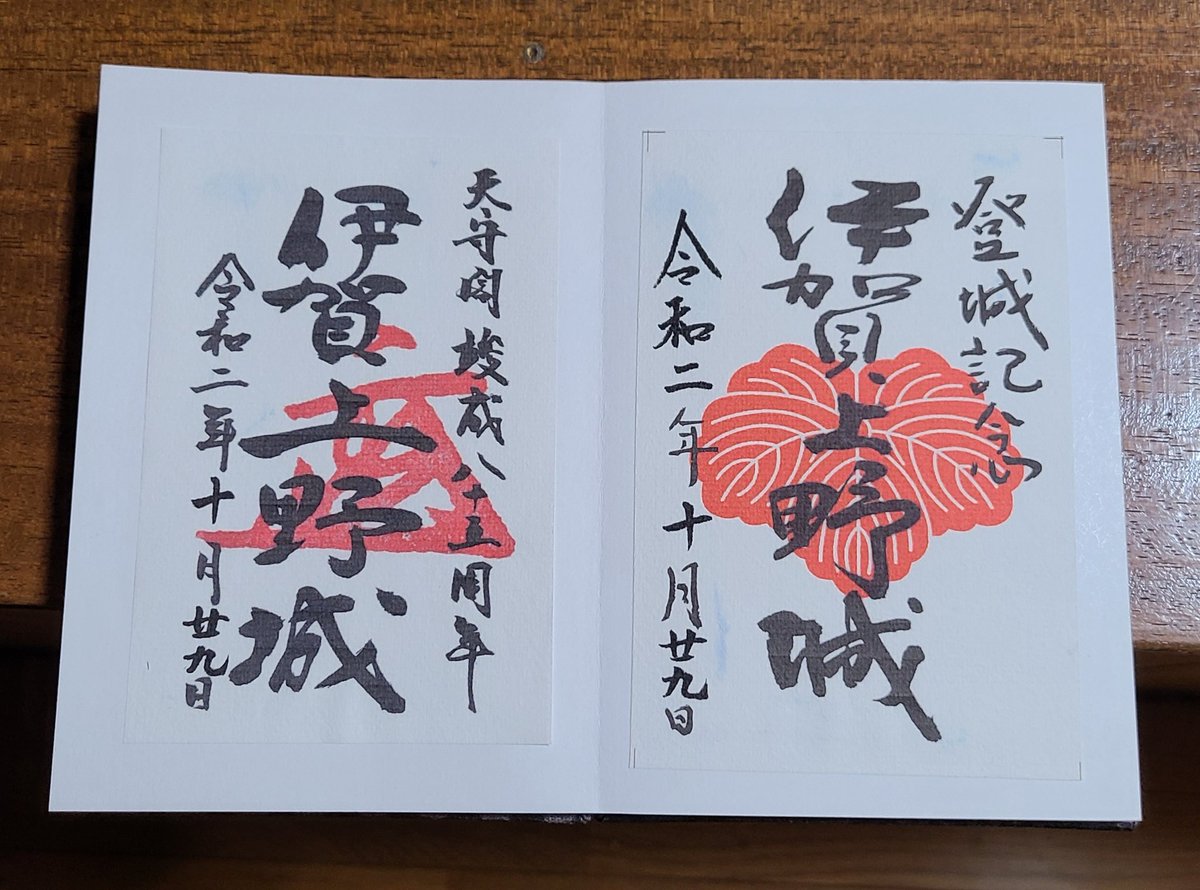 登城記念
伊賀上野城
令和二年十月廿九日
天守閣竣成八十五周年
伊賀上野城
令和二年十月廿九日